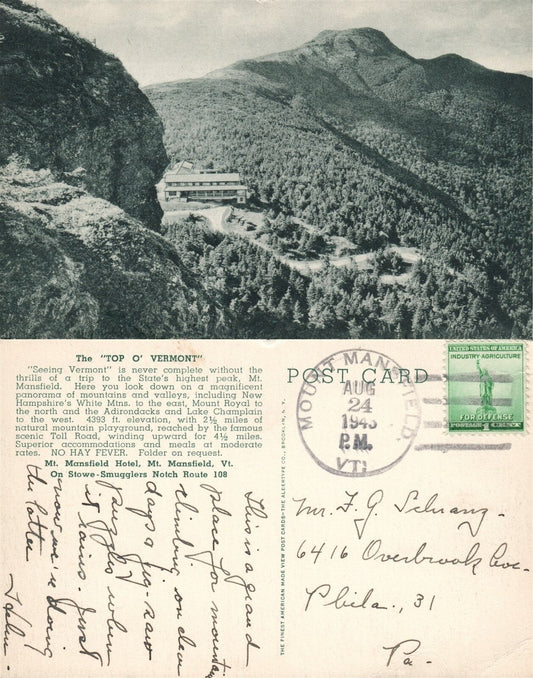 The "TOP O' VERMONT"
"Seeing Vermont" is never complete without the
thrills of a trip to the State's highest peak, Mt.
Mansfield. Here you look down on a magnificent
panorama of mountains and valleys, including New
Hampshire's White Mtns. to the east, Mount Royal to
the north and the Adirondacks and Lake Champlain
to the west. 4393 ft. elevation, with 2½ miles of
natural mountain playground, reached by the famous
scenic Toll Road, winding upward for 4½ miles.
Superior accommodations and meals at moderate
rates. NO HAY FEVER. Folder on request.
Mt. Mansfield Hotel, Mt. Mansfield, Vt.
On Stowe-Smugglers Notch Route 108
This is a grand
place for mountain
climbing on clear
days & jig-saw
puzzles when
it rains. Just
now we're doing
the latter.
Helen-
THE FINEST AMERICAN MADE VIEW POST CARDS—THE ALBERTYPE CO., BROOKLYN, N. Y.
POST CARD
MOUNT MANSFIELD,
AUG
24
1943
P.M.
VT.
UNITED STATES OF AMERICA
INDUSTRY-AGRICULTURE
FOR DEFENSE
POSTAGE 1 CENT
Mr. F. G.
6416 Overbrook Ave.
Phila., 31
Pa.